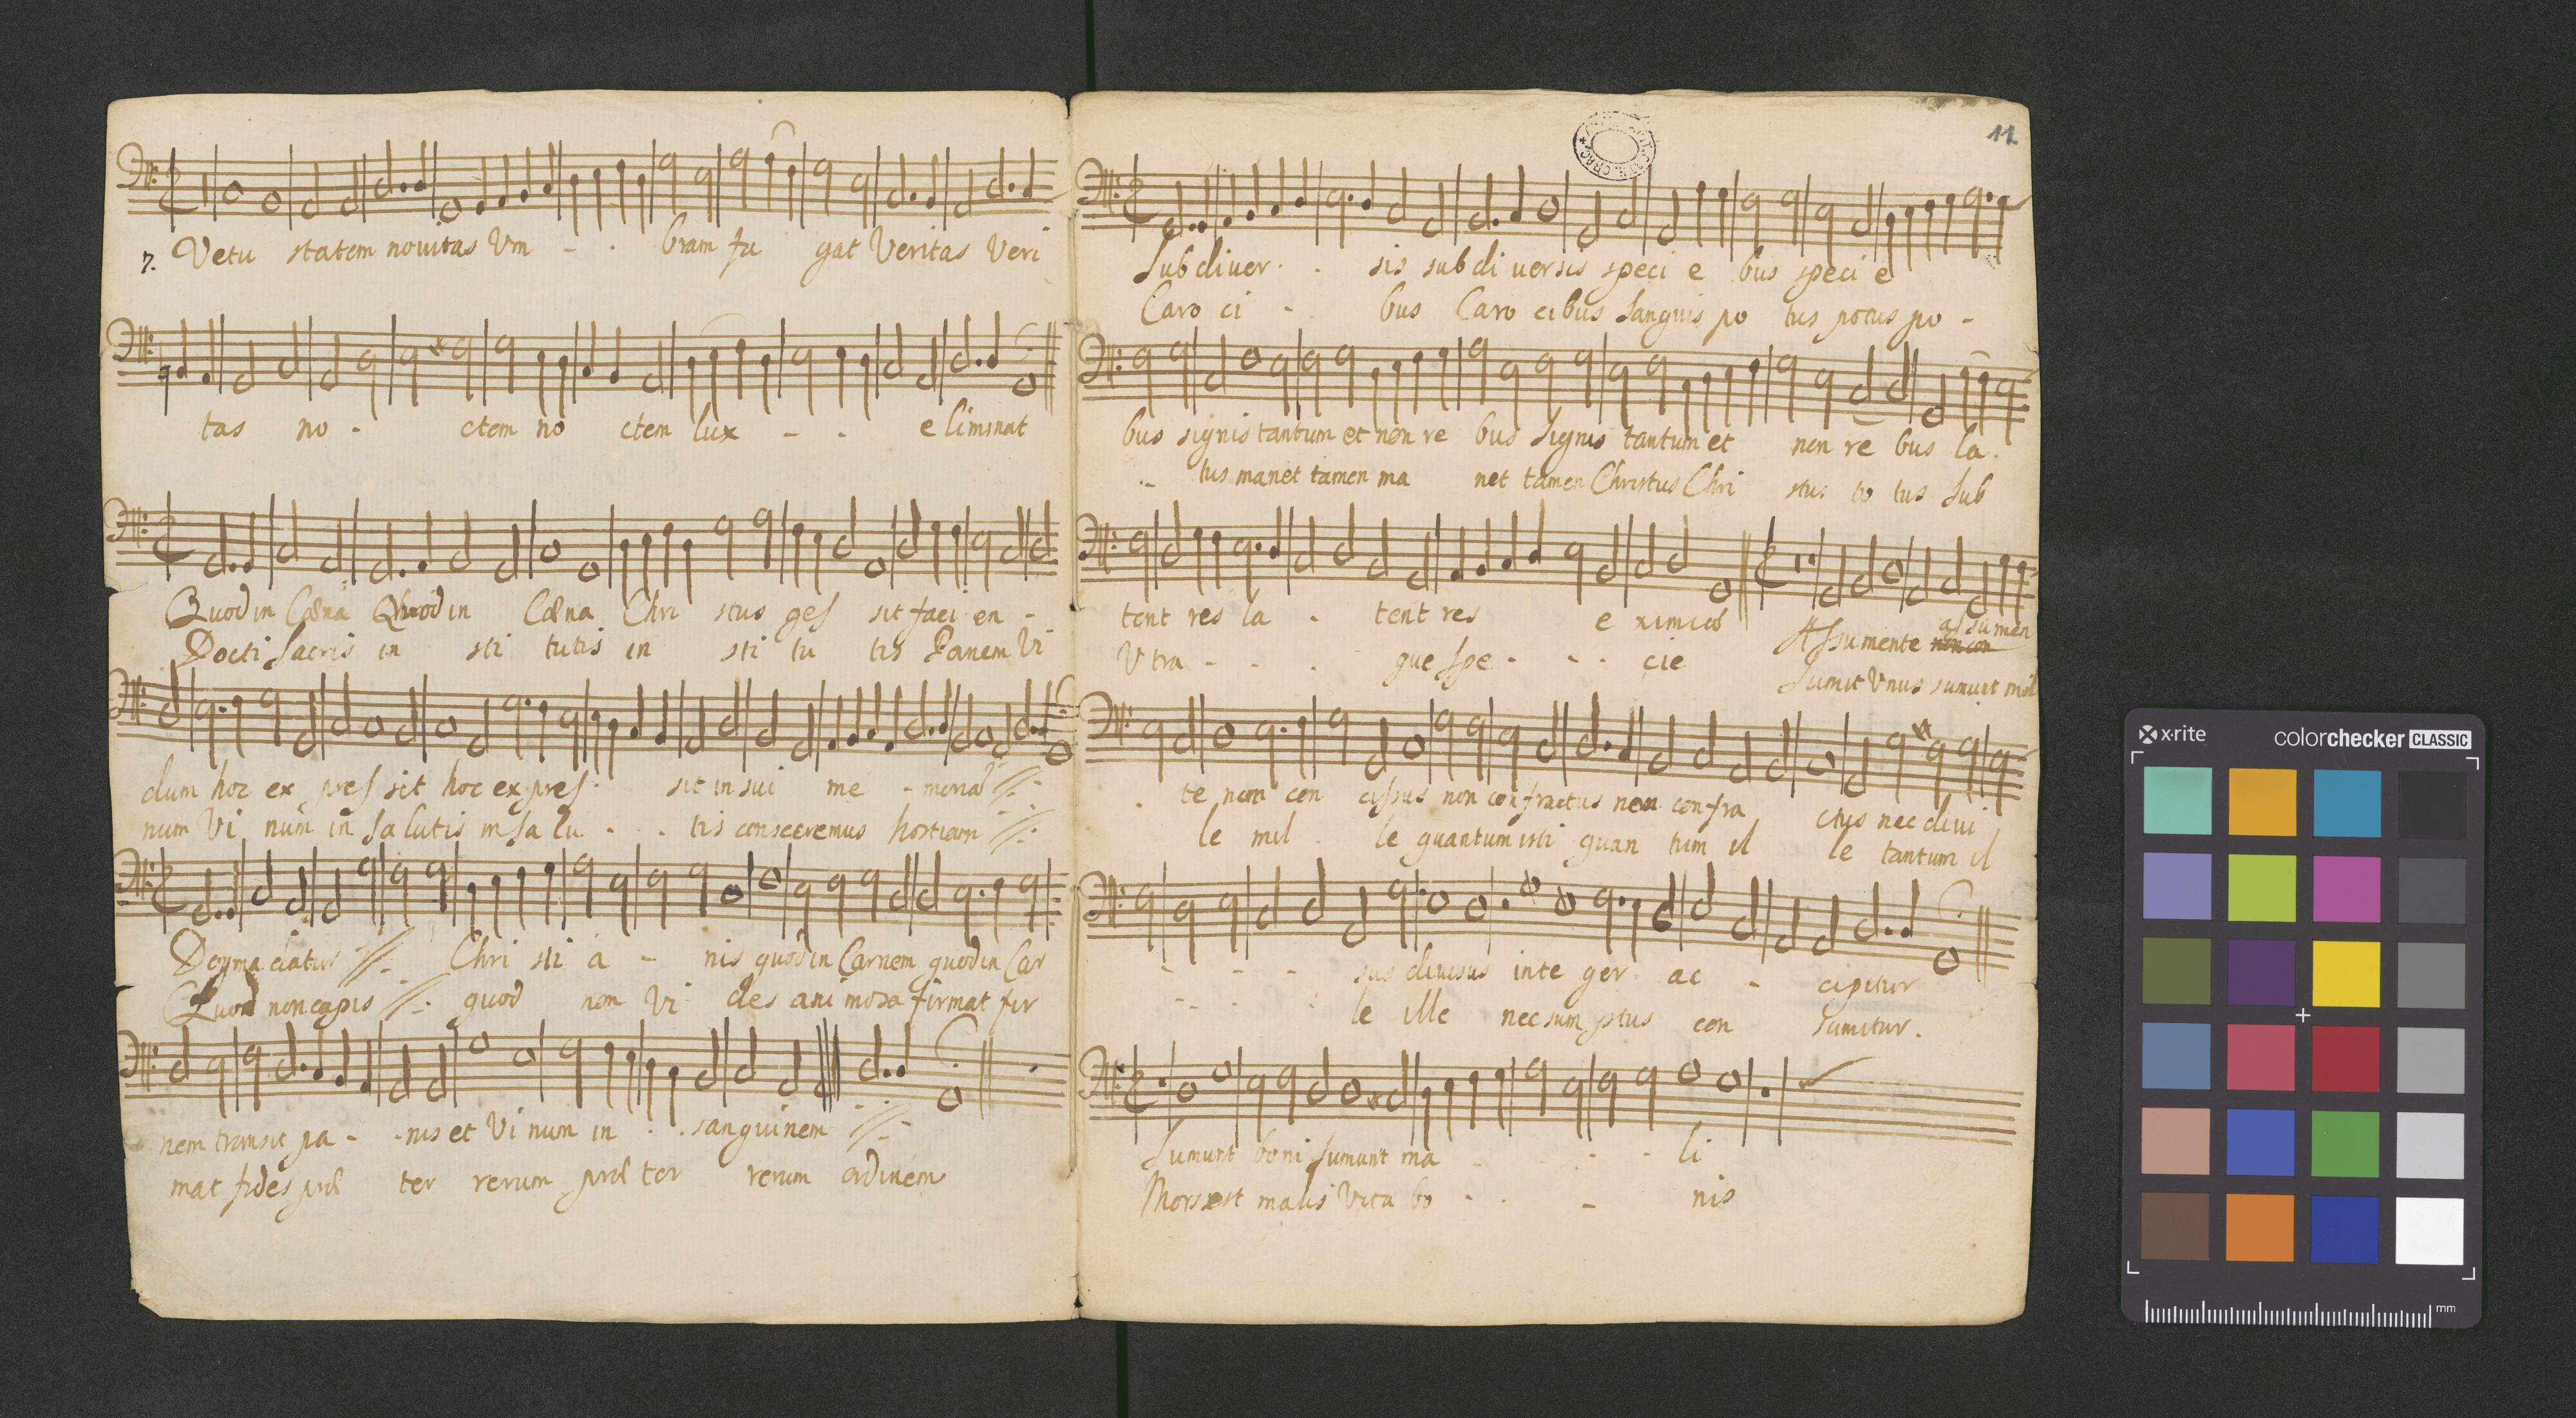 7. Vetu statem novitas Vm - . bram fu gat Veritas Veri
tas no - ctem no ctem lux - - e liminat
Quod in Cæna Quod in Cæna Chri stus ges sit faci en -
Docti Sacris in sti tutis in sti tu tis Panem Vi
dum hoc ex pres sit hoc ex pres . sit in sui me - moria
num Vi num in Sa lutis in Sa lu - . tis consecremus hostiam
Dogma datur Chri sti a - nis quod in Carnem quod in Car
Quod non capis quod non Vi des ani mosa firmat fir
nem transit pa - . nis et Vi num in . . sanguinem
mat fides præ ter rerum præ ter rerum ordinem
11
Sub diver . . sis sub di versis speci e bus speci e
Caro ci - . bus Caro cibus Sanguis po tus potus po -
bus signis tantum et non re bus Signis tantum et non re bus la .
- tus manet tamen ma net tamen Christus Chri stus to tus Sub
tent res la . tent res e ximiæ
assumen
A Sumente non con
V tra - . . que Spe - . . cie
Sumit Vnus sumunt mil
. te non con cissus non confractus non con fra ctus nec divi
le mil . le quantum isti quan tum il le tantum il
- - - sus divisus inte ger ac - cipitur
- . . le ille nec sum ptus con sumitur.
Sumunt boni Sumunt ma - . . li
Mors est malis Vita bo - . - nis
x·rite
colorchecker CLASSIC
mm